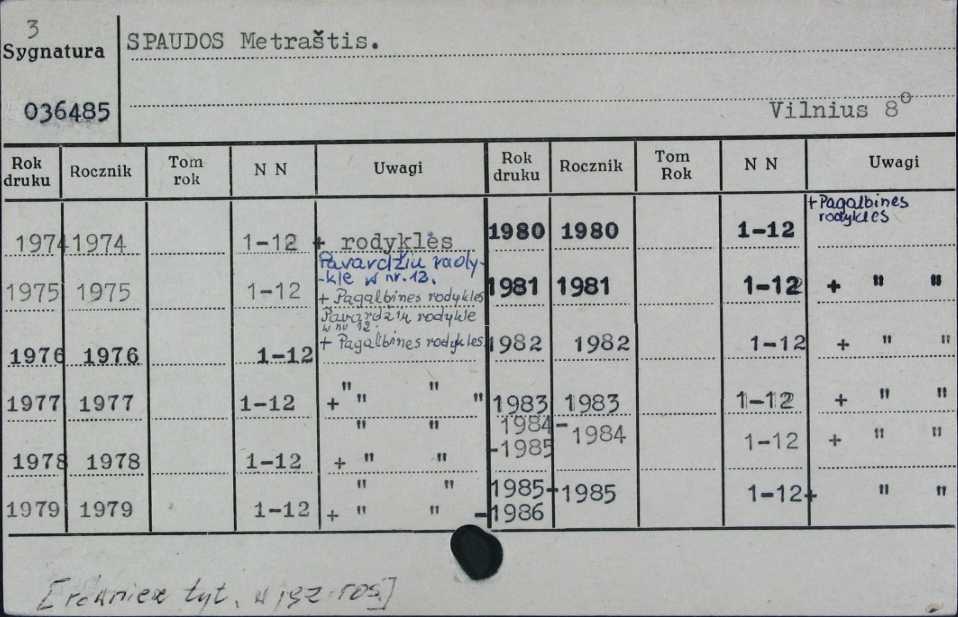 3
Sygnatura
SPAUDOS Metraštis.
036485
Vilnius 8°
Rok druku Rocznik Tom rok N N Uwagi Rok druku Rocznik Tom Rok N N Uwagi
1974 1974 1-12 + rodyklės
Pavardžiu rody-
-kle w nr. 12.
1975 1975 1-12 + Pagalbines rodykles
Pavardžių rodykle
w nr 12.
1976 1976 1-12 + Pagalbines rodykles
" "
1977 1977 1-12 + " "
" "
1978 1978 1-12 + " "
" "
1979 1979 1-12 + " "
1980 1980 1-12 + Pagalbines
rodykles
1981 1981 1-12 + " "
1982 1982 1-12 + " "
1983 1983 1-12 + " "
1984-
-1985 1984 1-12 + " "
1985-
-1986 1985 1-12 + " "
[również tyt. w jęz. ros.]